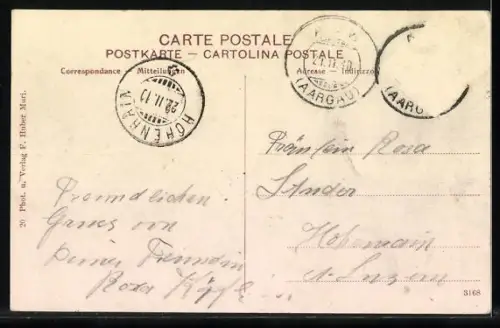 CARTE POSTALE
POSTKARTE — CARTOLINA POSTALE
Correspondance — Mitteilungen
Adresse — Indirizzo
HOHENRAIN
22.II.10
21.II.10
(AARGAU)
(AARG
Fräulein Rosa
Hohenrain
Kt. Luzern
Freundlichen
Gruss von
Deiner Freundin
Rosa
20 Phot. u. Verlag F. Huber Muri.
3168